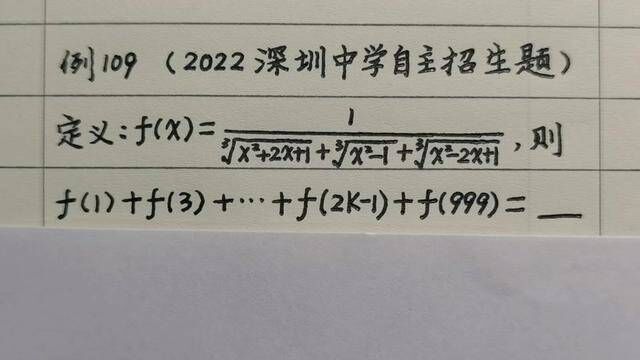 例109（2022深圳中学自主招生题）
定义:f(x)=1/(∛(x²+2x+1)+∛(x²-1)+∛(x²-2x+1)),则
f(1)+f(3)+…+f(2K-1)+f(999)=__